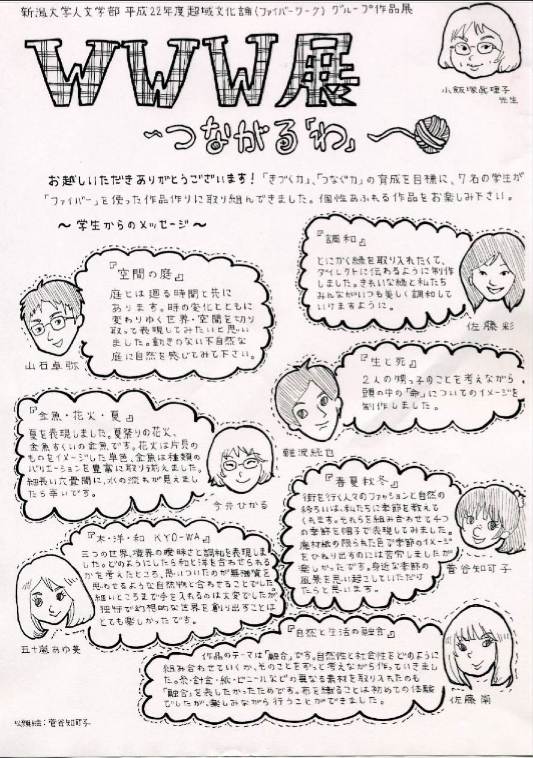 新潟大学人文学部 平成22年度超域文化論(ファイバーワーク) グループ作品展
WWW展
〜つながる「わ」
小飯塚真理子
先生
お越しいただきありがとうございます!「きづく力」、「つなぐ力」の育成を目標に、7名の学生が
「ファイバー」を使った作品作りに取り組んできました。個性あふれる作品をお楽しみ下さい。
〜学生からのメッセージ〜
『空間の庭』
庭とは廻る時間と共に
あります。時の変化とともに
変わりゆく世界・空間を切り
取って表現してみたいと思い
ました。動きのない不自然な
庭に自然を感じてみて下さい。
山石卓弥
『調和』
とにかく緑を取り入れたくて、
ダイレクトに伝わるように制作
しました。きれいな緑と私たち
みんながいつも美しく調和して
いけますように。
佐藤彩
『生と死』
2人の甥っ子のことを考えながら、
頭の中の「命」についてのイメージを
制作しました。
難波統也
『金魚・花火・夏』
夏を表現しました。夏祭りの花火、
金魚すくいの金魚です。花火は片貝の
ものをイメージした単色、金魚は種類の
バリエーションを豊富に取り揃えました。
細長い六畳間に、水の流れが見えまし
たら幸いです。
今元ひかる
『春夏秋冬』
街を行く人々のファッションと自然の
移ろいは、私たちに季節を教えて
くれます。それらを組み合わせて4つ
の季節を帽子で表現してみました。
廃材紙の限られた色で季節のイメージ
をひねり出すのには苦労しましたが
楽しかったです。身近な季節の
風景を思い起こしていただけ
たらと思います。
菅谷知可子
『木・洋・和 KYO-WA』
三つの世界、境界の曖昧さと調和を表現しま
した。どのようにしたら和と洋を合わせられる
かを考えたところ、思いついたのが無機質を
思わせるような自然物と合わせることでした。
細いところまで手を入れるのは大変でしたが、
独特で幻想的な世界を創り出すことは
とても楽しかったです。
五十嵐あゆ美
『自然と生活の融合』
作品のテーマは「融合」です。自然性と社会性をどのように
組み合わせていくか、そのことをずっと考えながら作っていきまし
た。糸・針金・紙・ビニールなどの異なる素材を取り入れたのも
「融合」を表したかったためです。布を織ることは初めての体験
でしたが、楽しみながら行うことができました。
佐藤南
似顔絵:菅谷知可子